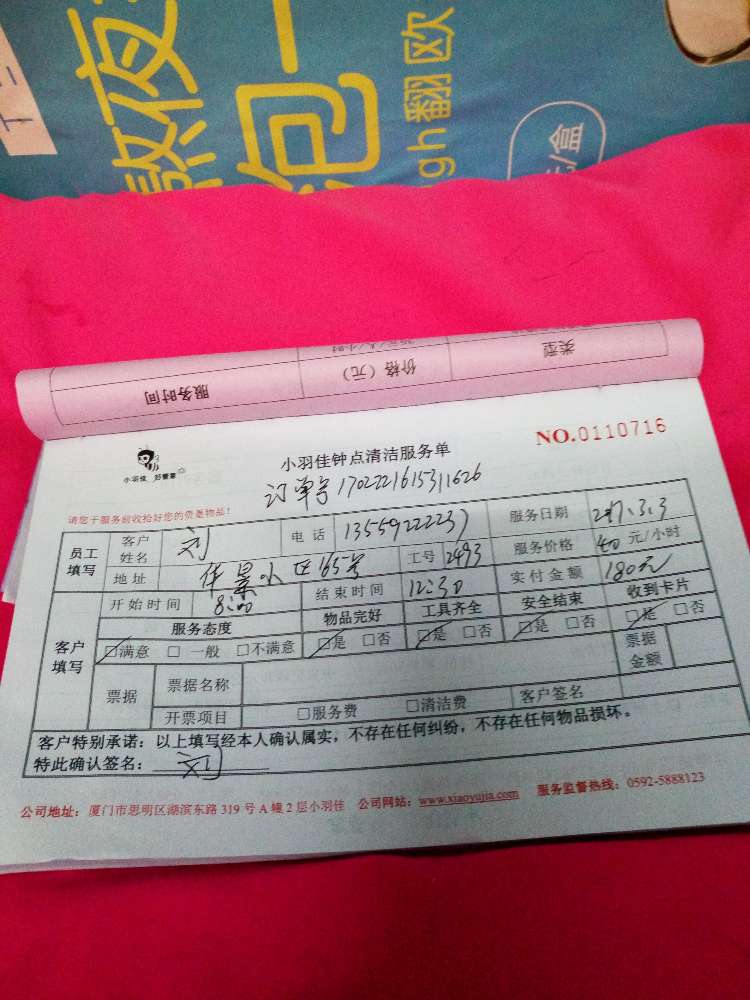 熬夜
包一
gh翻欧
元/盒
类型
价格（元）
服务时间
NO.0110716
小羽佳 好管家
小羽佳钟点清洁服务单
订单号 170222161531 1626
请您于服务前收拾好您的贵重物品!
员工填写 客户姓名 刘 电话 13559222237 服务日期 2017.3.3
地址 华景小区165号 工号 2493 服务价格 40 元/小时
客户填写 开始时间 8:00 结束时间 12:30 实付金额 180元
服务态度 物品完好 工具齐全 安全结束 收到卡片
☑满意 □一般 □不满意 ☑是 □否 ☑是 □否 ☑是 □否 ☑是 □否
票据 票据名称 票据金额
开票项目 □服务费 □清洁费 客户签名
客户特别承诺：以上填写经本人确认属实，不存在任何纠纷，不存在任何物品损坏。
特此确认签名：刘
公司地址：厦门市思明区湖滨东路 319 号 A 幢 2 层小羽佳 公司网站：www.xiaoyujia.com 服务监督热线：0592-5888123